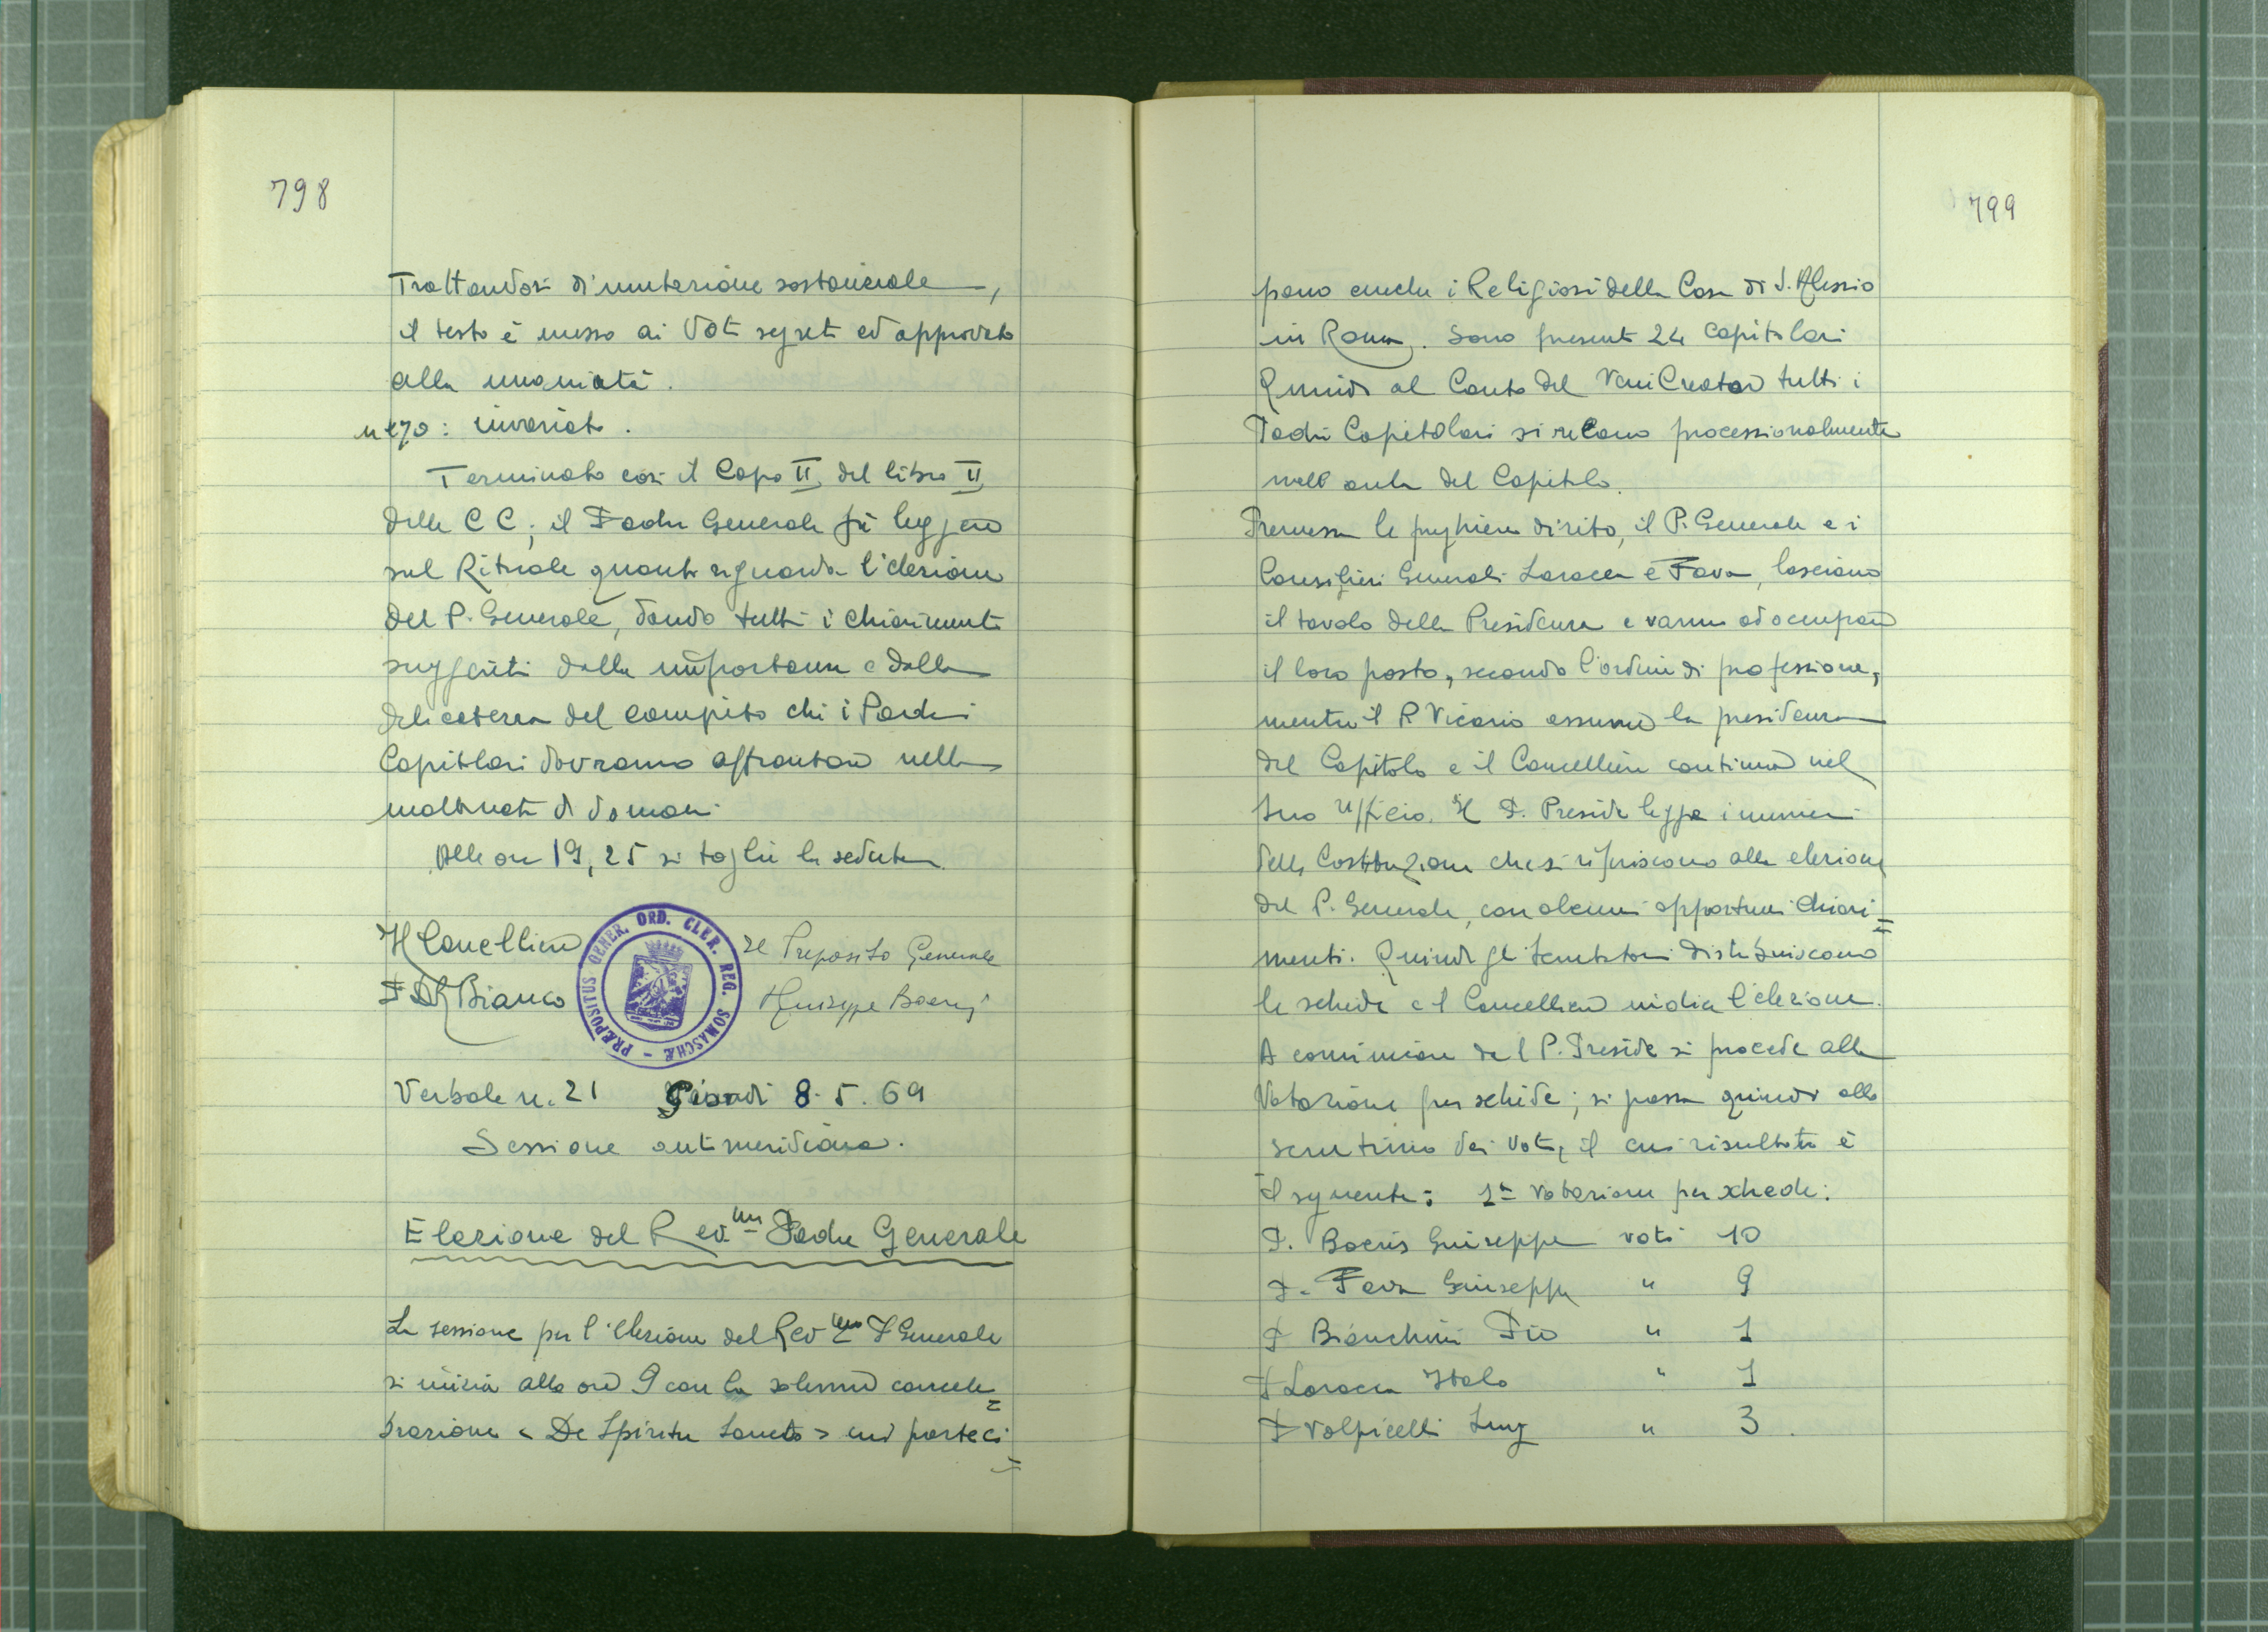 798
Trattandosi di mutazione sostanziale,
il testo è messo ai voti segreti ed approvato
alla unanimità.
n 270: invariato.
Terminato così il Capo II del libro II
delle CC; il Padre Generale fa leggere
sul Rituale quanto riguarda l'elezione
del P. Generale, dando tutti i chiarimenti
suggeriti dalla importanza e dalla
delicatezza del compito che i Padri
Capitolari dovranno affrontare nella
mattinata di domani.
Alle ore 19,25 si toglie la seduta.
Il Cancelliere
Il Preposito Generale
P. Bianco
Giuseppe Boeris
PRÆPOSITUS GENER. ORD. CLER. REG. SOMASCHÆ -
Verbale n. 21 Giovedì 8.5.69
Sessione antimeridiana.
Elezione del Rev.mo Padre Generale
La sessione per l'elezione del Rev.mo P Generale
si inizia alle ore 9 con la solenne concele=
brazione « De Spiritu Sancto » cui parteci=
799
pano anche i Religiosi della Casa di S. Alessio
in Roma. Sono presenti 24 Capitolari
Quindi al Canto del Veni Creator tutti i
Padri Capitolari si recano processionalmente
nell'aula del Capitolo.
Premesse le preghiere di rito, il P. Generale e i
Consiglieri Generali Laracca e Fava, lasciano
il tavolo della Presidenza e vanno ad occupare
il loro posto, secondo l'ordine di professione,
mentre il P Vicario assume la presidenza
del Capitolo e il Cancelliere continua nel
suo Ufficio. Il P. Preside legge i numeri
delle Costituzioni che si riferiscono alla elezione
del P. Generale, con alcuni opportuni chiari=
menti. Quindi gli Scrutatori distribuiscono
le schede e il Cancelliere indica l'elezione.
A comincion del P. Preside si procede alla
Votazione per schede; si passa quindi allo
scrutinio dei voti, il cui risultato è
il seguente: 1ª Votazione per schede:
P. Boeris Giuseppe voti 10
P. Fava Giuseppe " 9
P Bianchini Pio " 1
P Laracca Italo " 1
P Volpicelli Luigi " 3.